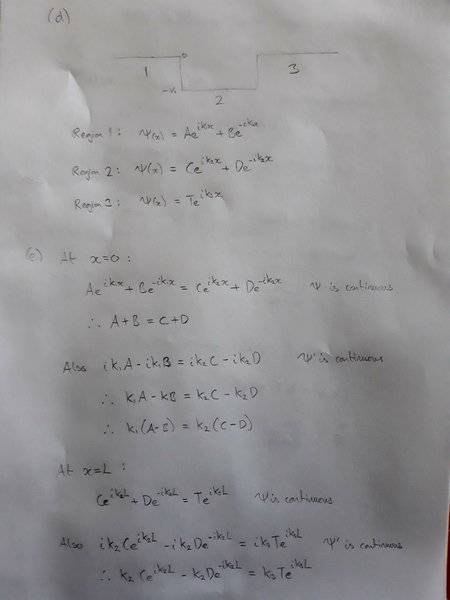 (d)
0
1
3
2
Region 1: ψ(x) = Ae^{ik₁x} + Be^{-ik₁x}
Region 2: ψ(x) = Ce^{ik₂x} + De^{-ik₂x}
Region 3: ψ(x) = Te^{ik₃x}
(e) At x=0:
Ae^{ik₁x} + Be^{-ik₁x} = Ce^{ik₂x} + De^{-ik₂x} ψ is continuous
∴ A+B = C+D
Also ik₁A - ik₁B = ik₂C - ik₂D ψ' is continuous
∴ k₁A - kB = k₂C - k₂D
∴ k₁(A-B) = k₂(C-D)
At x=L:
Ce^{ik₂L} + De^{-ik₂L} = Te^{ik₃L} ψ is continuous
Also ik₂Ce^{ik₂L} - ik₂De^{-ik₂L} = ik₃Te^{ik₃L} ψ' is continuous
∴ k₂Ce^{ik₂L} - k₂De^{-ik₂L} = k₃Te^{ik₃L}